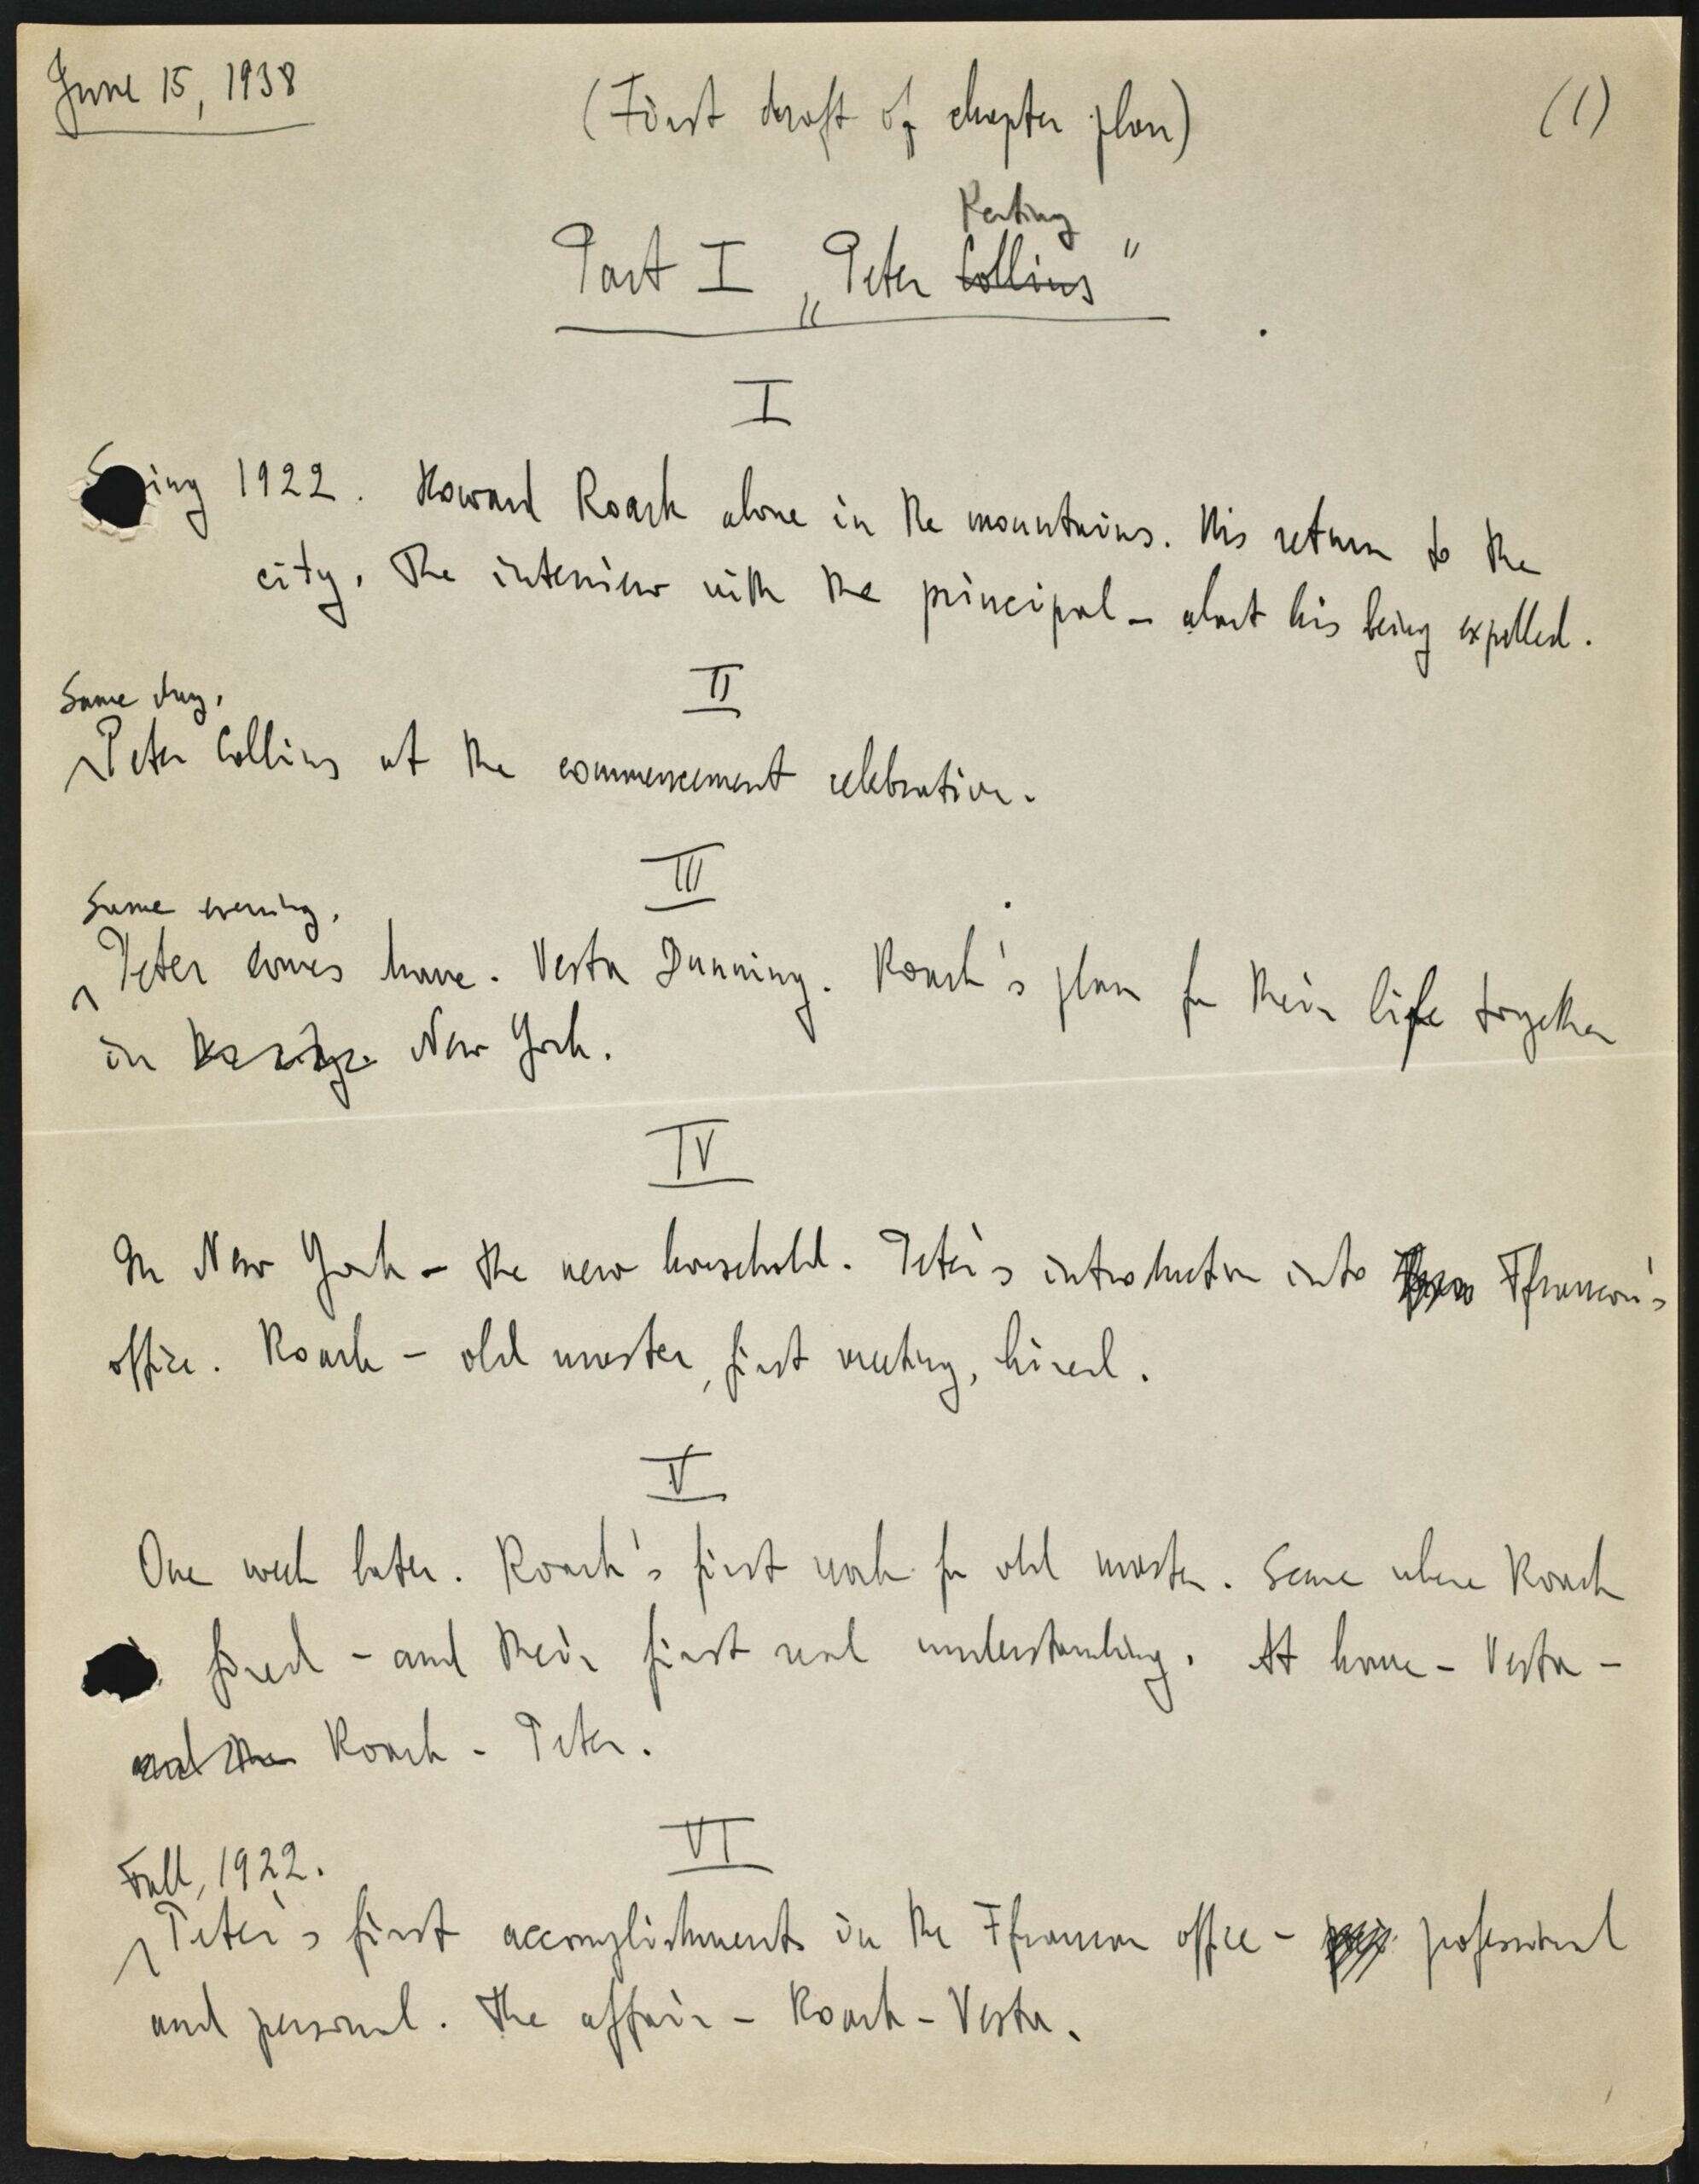 June 15, 1938
(First draft of chapter plan)
(1)
Keating
Part I „Peter Collins"
I
Spring 1922. Howard Roark alone in the mountains. His return to the
city. The interview with the principal – about his being expelled.
II
Same day,
Peter Collins at the commencement celebration.
III
Same evening,
Peter comes home. Vesta Dunning. Roark's plan for their life together
in New York.
IV
In New York – the new household. Peter's introduction into Ffrancon's
office. Roark – old master, first meeting, hired.
V
One week later. Roark's first work for old master. Scene where Roark
is fired – and their first real understanding. At home – Vesta –
and the Roark – Peter.
VI
Fall, 1922.
Peter's first accomplishments in the Ffrancon office – professional
and personal. The affair – Roark – Vesta.